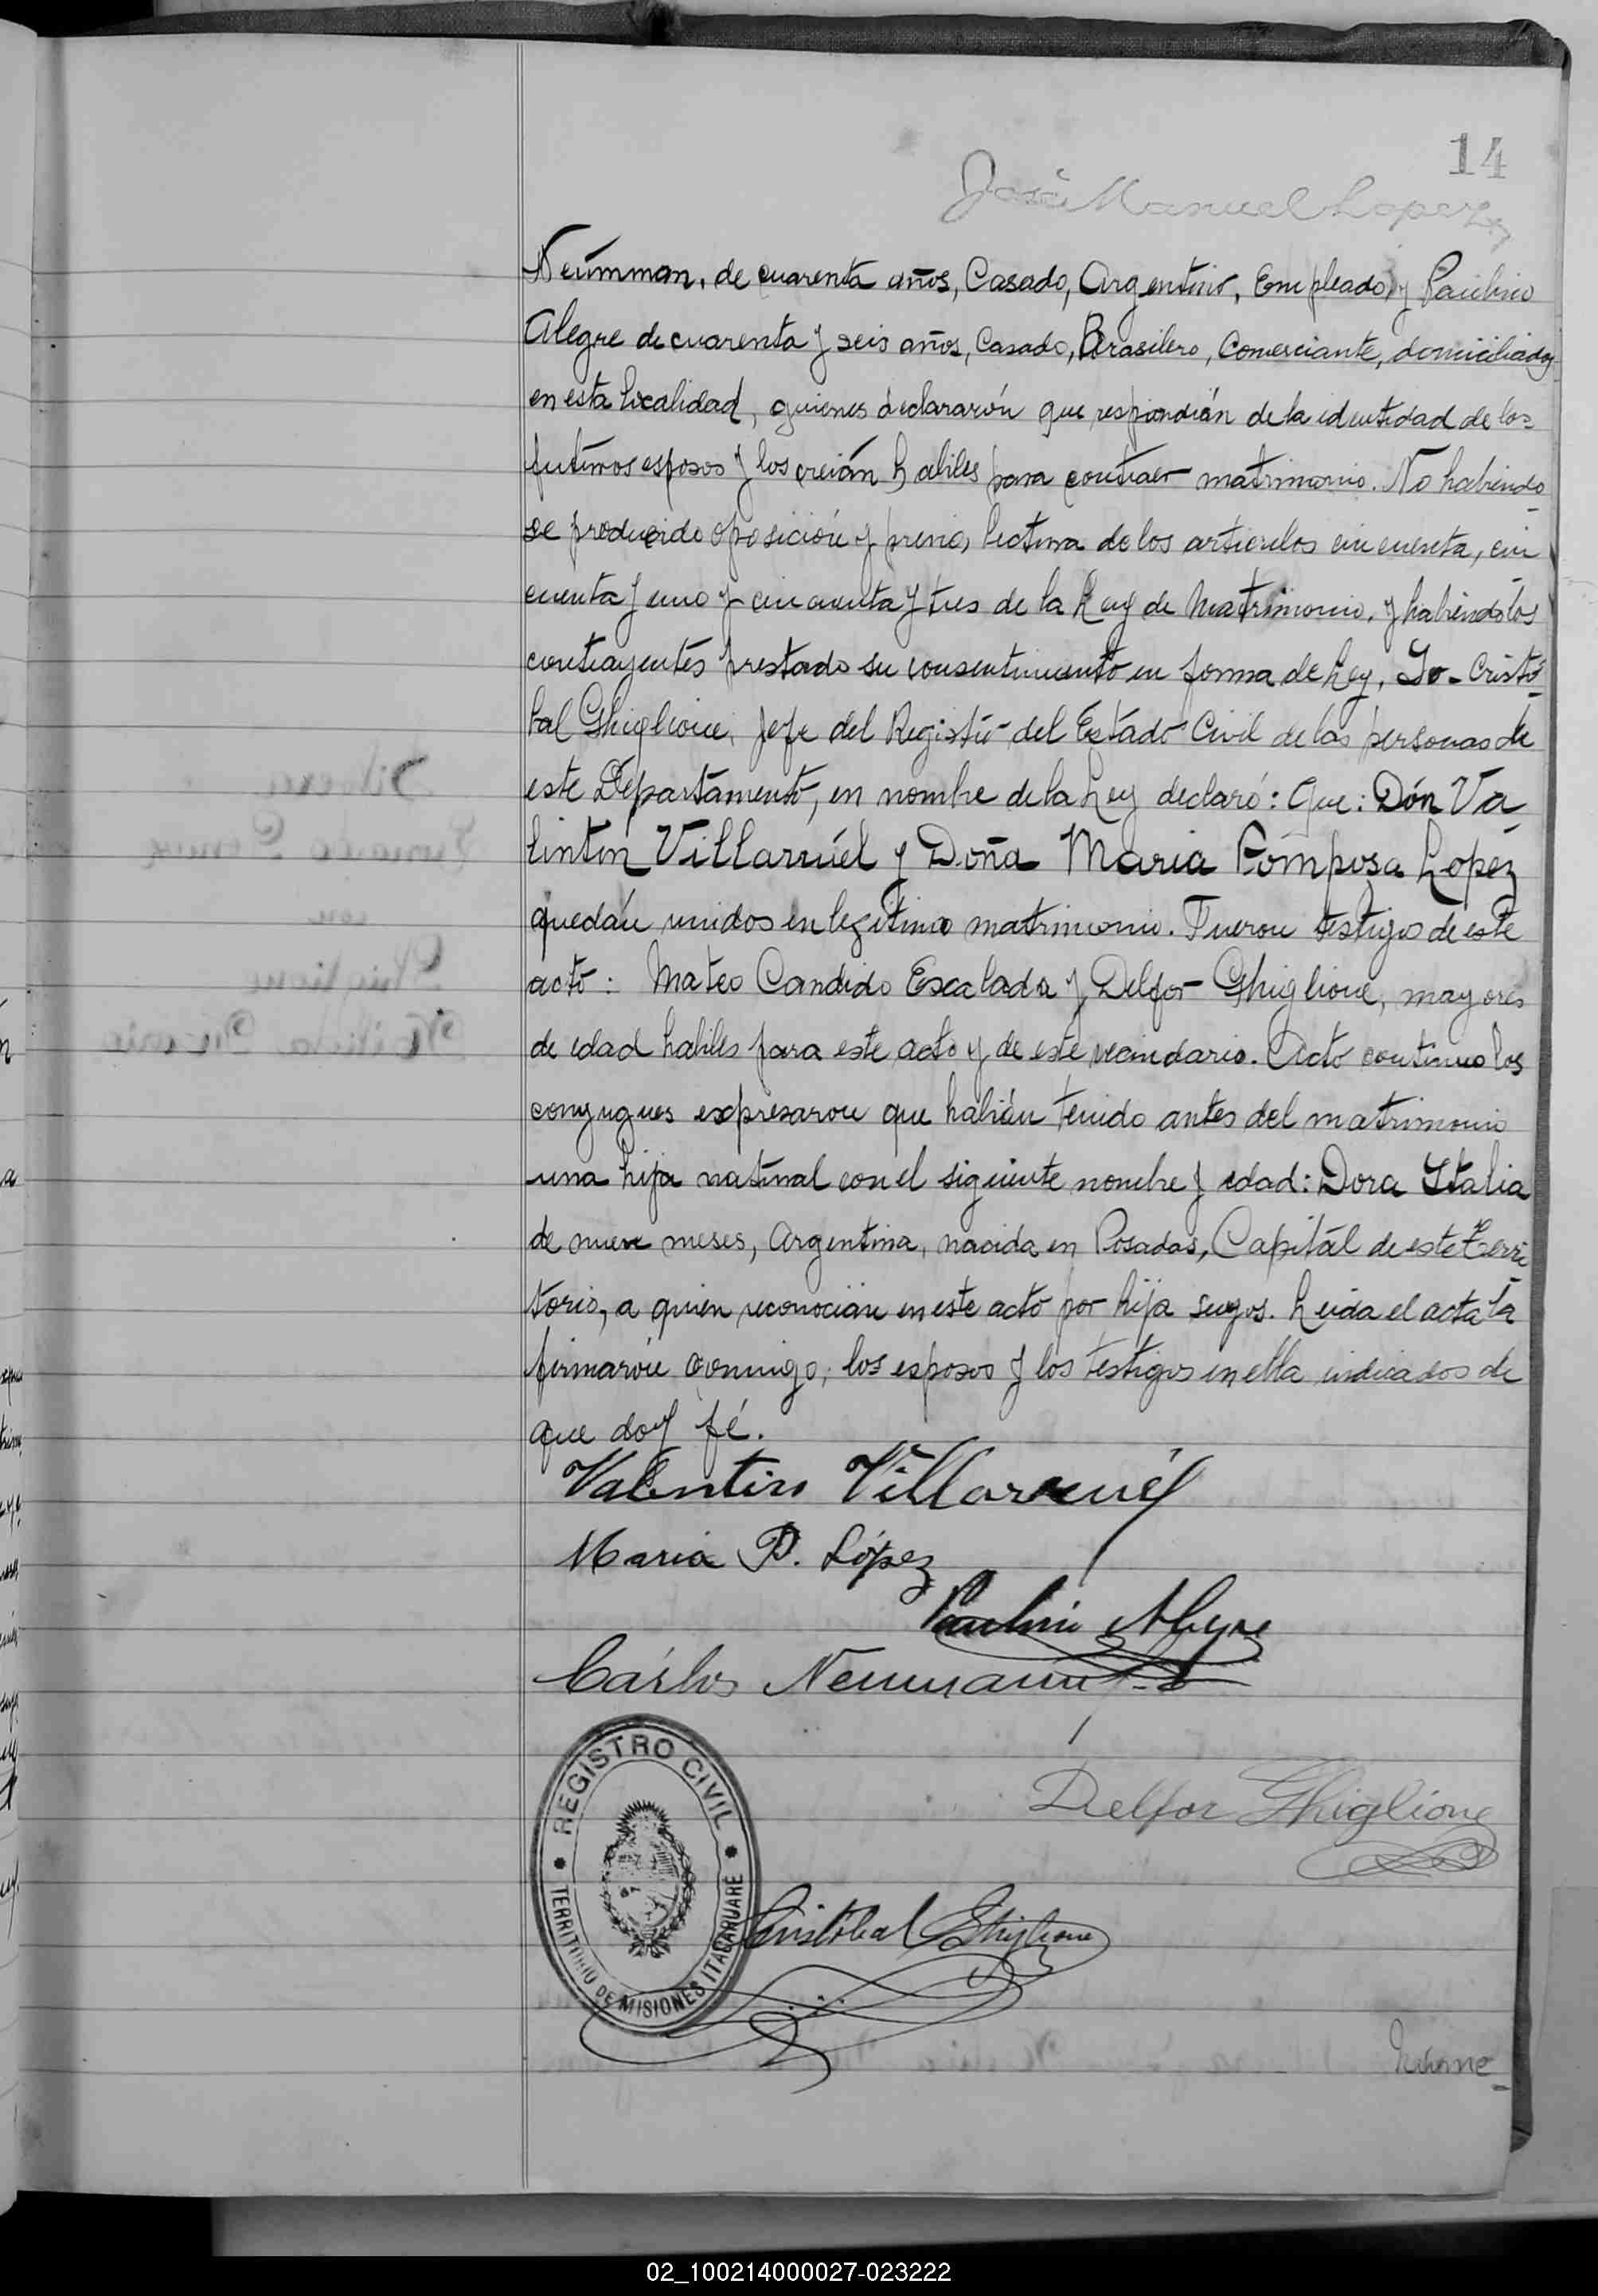 14
José Manuel Lopez
Neúmman, de cuarenta años, Casado, Argentino, Empleado, y Paulino
Alegre de cuarenta y seis años, Casado, Brasilero, Comerciante, domiciliados
en esta localidad, quienes declararón que respondián de la identidad de los
futuros esposos y los creián habiles para contraer matrimonio. No habiendo-
se producido oposición y previo, lectura de los articulos cincuenta, cin
cuenta y uno y cincuenta y tres de la Ley de Matrimonio, y habiendo los
contrayentes prestado su consentimiento en forma de Ley, Yo - Cristó-
bal Ghiglione, Jefe del Registro del Estado Civil de las personas de
este Departamento, en nombre de la Ley declaró: Que: Dón Va-
lintin Villarruél y Doña Maria Pomposa Lopez
quedán unidos en legitimo matrimonio. Fueron testigos de este
acto: Mateo Candido Escalada y Delfor Ghiglione, mayores
de edad habiles para este acto y de este vecindario. Acto continuo los
conyugues expresaron que habián tenido antes del matrimonio
una hija natural con el siguiente nombre y edad: Dora Italia
de nueve meses, Argentina, nacida en Posadas, Capitál de este Terri-
torio, a quien reconocian en este acto por hija suyos. Leida el acta la
firmarón conmigo, los esposos y los testigos en ella indicados de
que doy fé.
Valentin Villarruél
Maria P. López
Paulino Alegre
Cárlos Neumann
Delfor Ghiglione
REGISTRO CIVIL
TERRITORIO DE MISIONES ITACARUARE
Cristobal Ghiglione
02_100214000027-023222